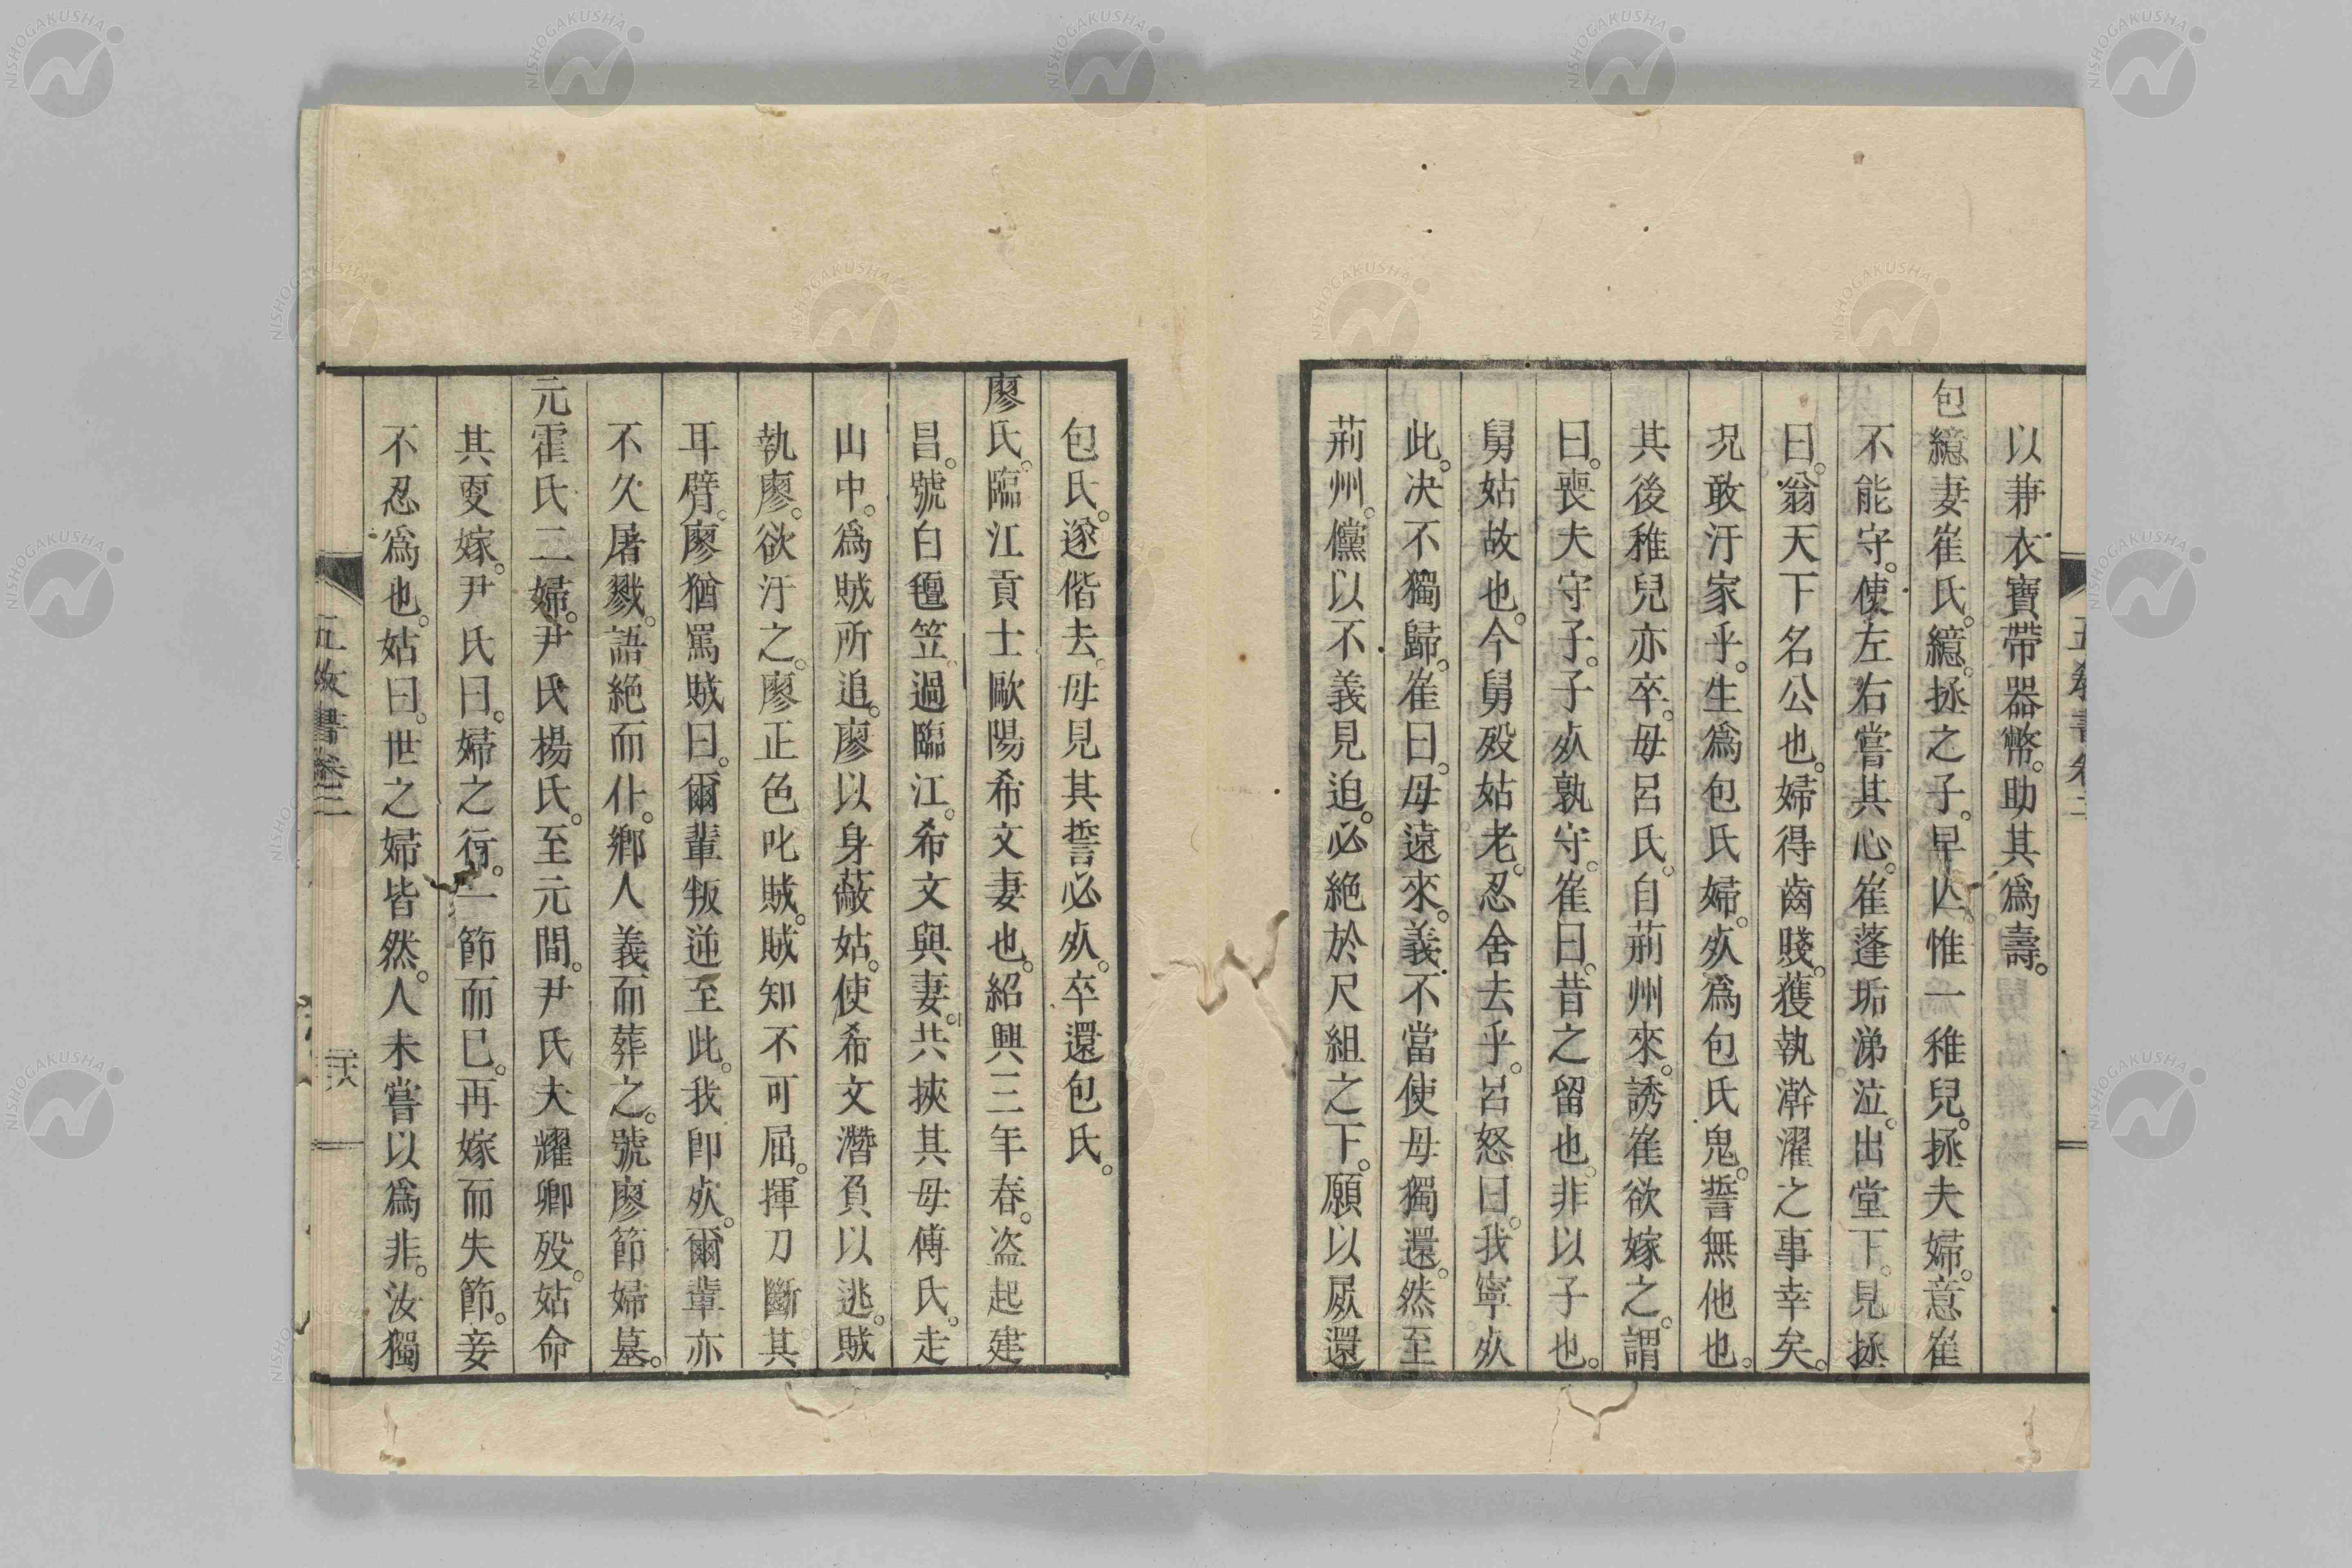 以葬衣寶帶器幣。助其爲壽。
包繶妻崔氏。繶。拯之子。早亾。惟一稚兒。拯夫婦。意崔
不能守。使左右嘗其心。崔蓬垢涕泣。出堂下。見拯
曰。翁天下名公也。婦得齒賤。獲執澣濯之事幸矣。
況敢汙家乎。生爲包氏婦。死爲包氏鬼。誓無他也。
其後稚兒亦卒。母呂氏。自荊州來。誘崔欲嫁之。謂
曰。喪夫守子。子死孰守。崔曰。昔之留也。非以子也。
舅姑故也。今舅歿姑老。忍舍去乎。呂怒曰。我寧死
此。决不獨歸。崔曰。母遠來。義不當使母獨還。然至
荊州。儻以不義見迫。必絕於尺組之下。願以屍還
包氏。遂偕去。母見其誓必死。卒還包氏。
廖氏。臨江貢士歐陽希文妻也。紹興三年春。盜起建
昌。號白氊笠。過臨江。希文與妻。共挾其母傅氏。走
山中。爲賊所追。廖以身蔽姑。使希文潛負以逃。賊
執廖。欲汙之。廖正色叱賊。賊知不可屈。揮刀斷其
耳臂。廖猶罵賊曰。爾輩叛逆至此。我卽死。爾輩亦
不久屠戮。語絕而仆。鄕人義而葬之。號廖節婦墓。
元霍氏二婦。尹氏楊氏。至元間。尹氏夫耀卿歿。姑命
其更嫁。尹氏曰。婦之行。一節而已。再嫁而失節。妾
不忍爲也。姑曰。世之婦皆然。人未嘗以爲非。汝獨
五敎書卷二
二十六